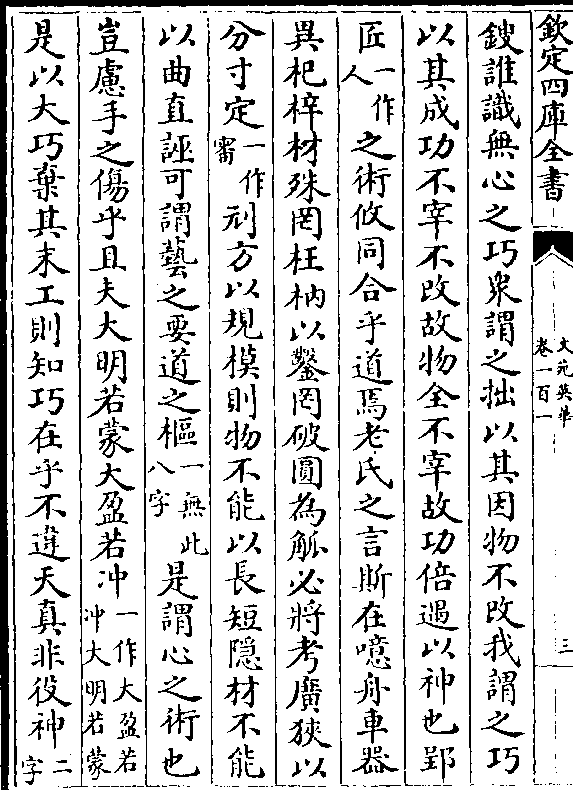 欽定四庫全書
文苑英華
卷一百一
三
鎪誰識無心之巧衆謂之拙以其因物不改我謂之巧
以其成功不宰不改故物全不宰故功倍遇以神也郢
匠一作人之術攸同合乎道焉老氏之言斯在噫舟車器
異杞梓材殊罔枉枘以鑿罔破圓為觚必將考廣狹以
分寸定一作審刓方以規模則物不能以長短隱材不能
以曲直誣可謂藝之要道之樞一無此八字是謂心之術也
豈慮手之傷乎且夫大明若蒙大盈若冲一作大盈若冲大明若蒙
是以大巧棄其末工則知巧在乎不違天真非役神二字